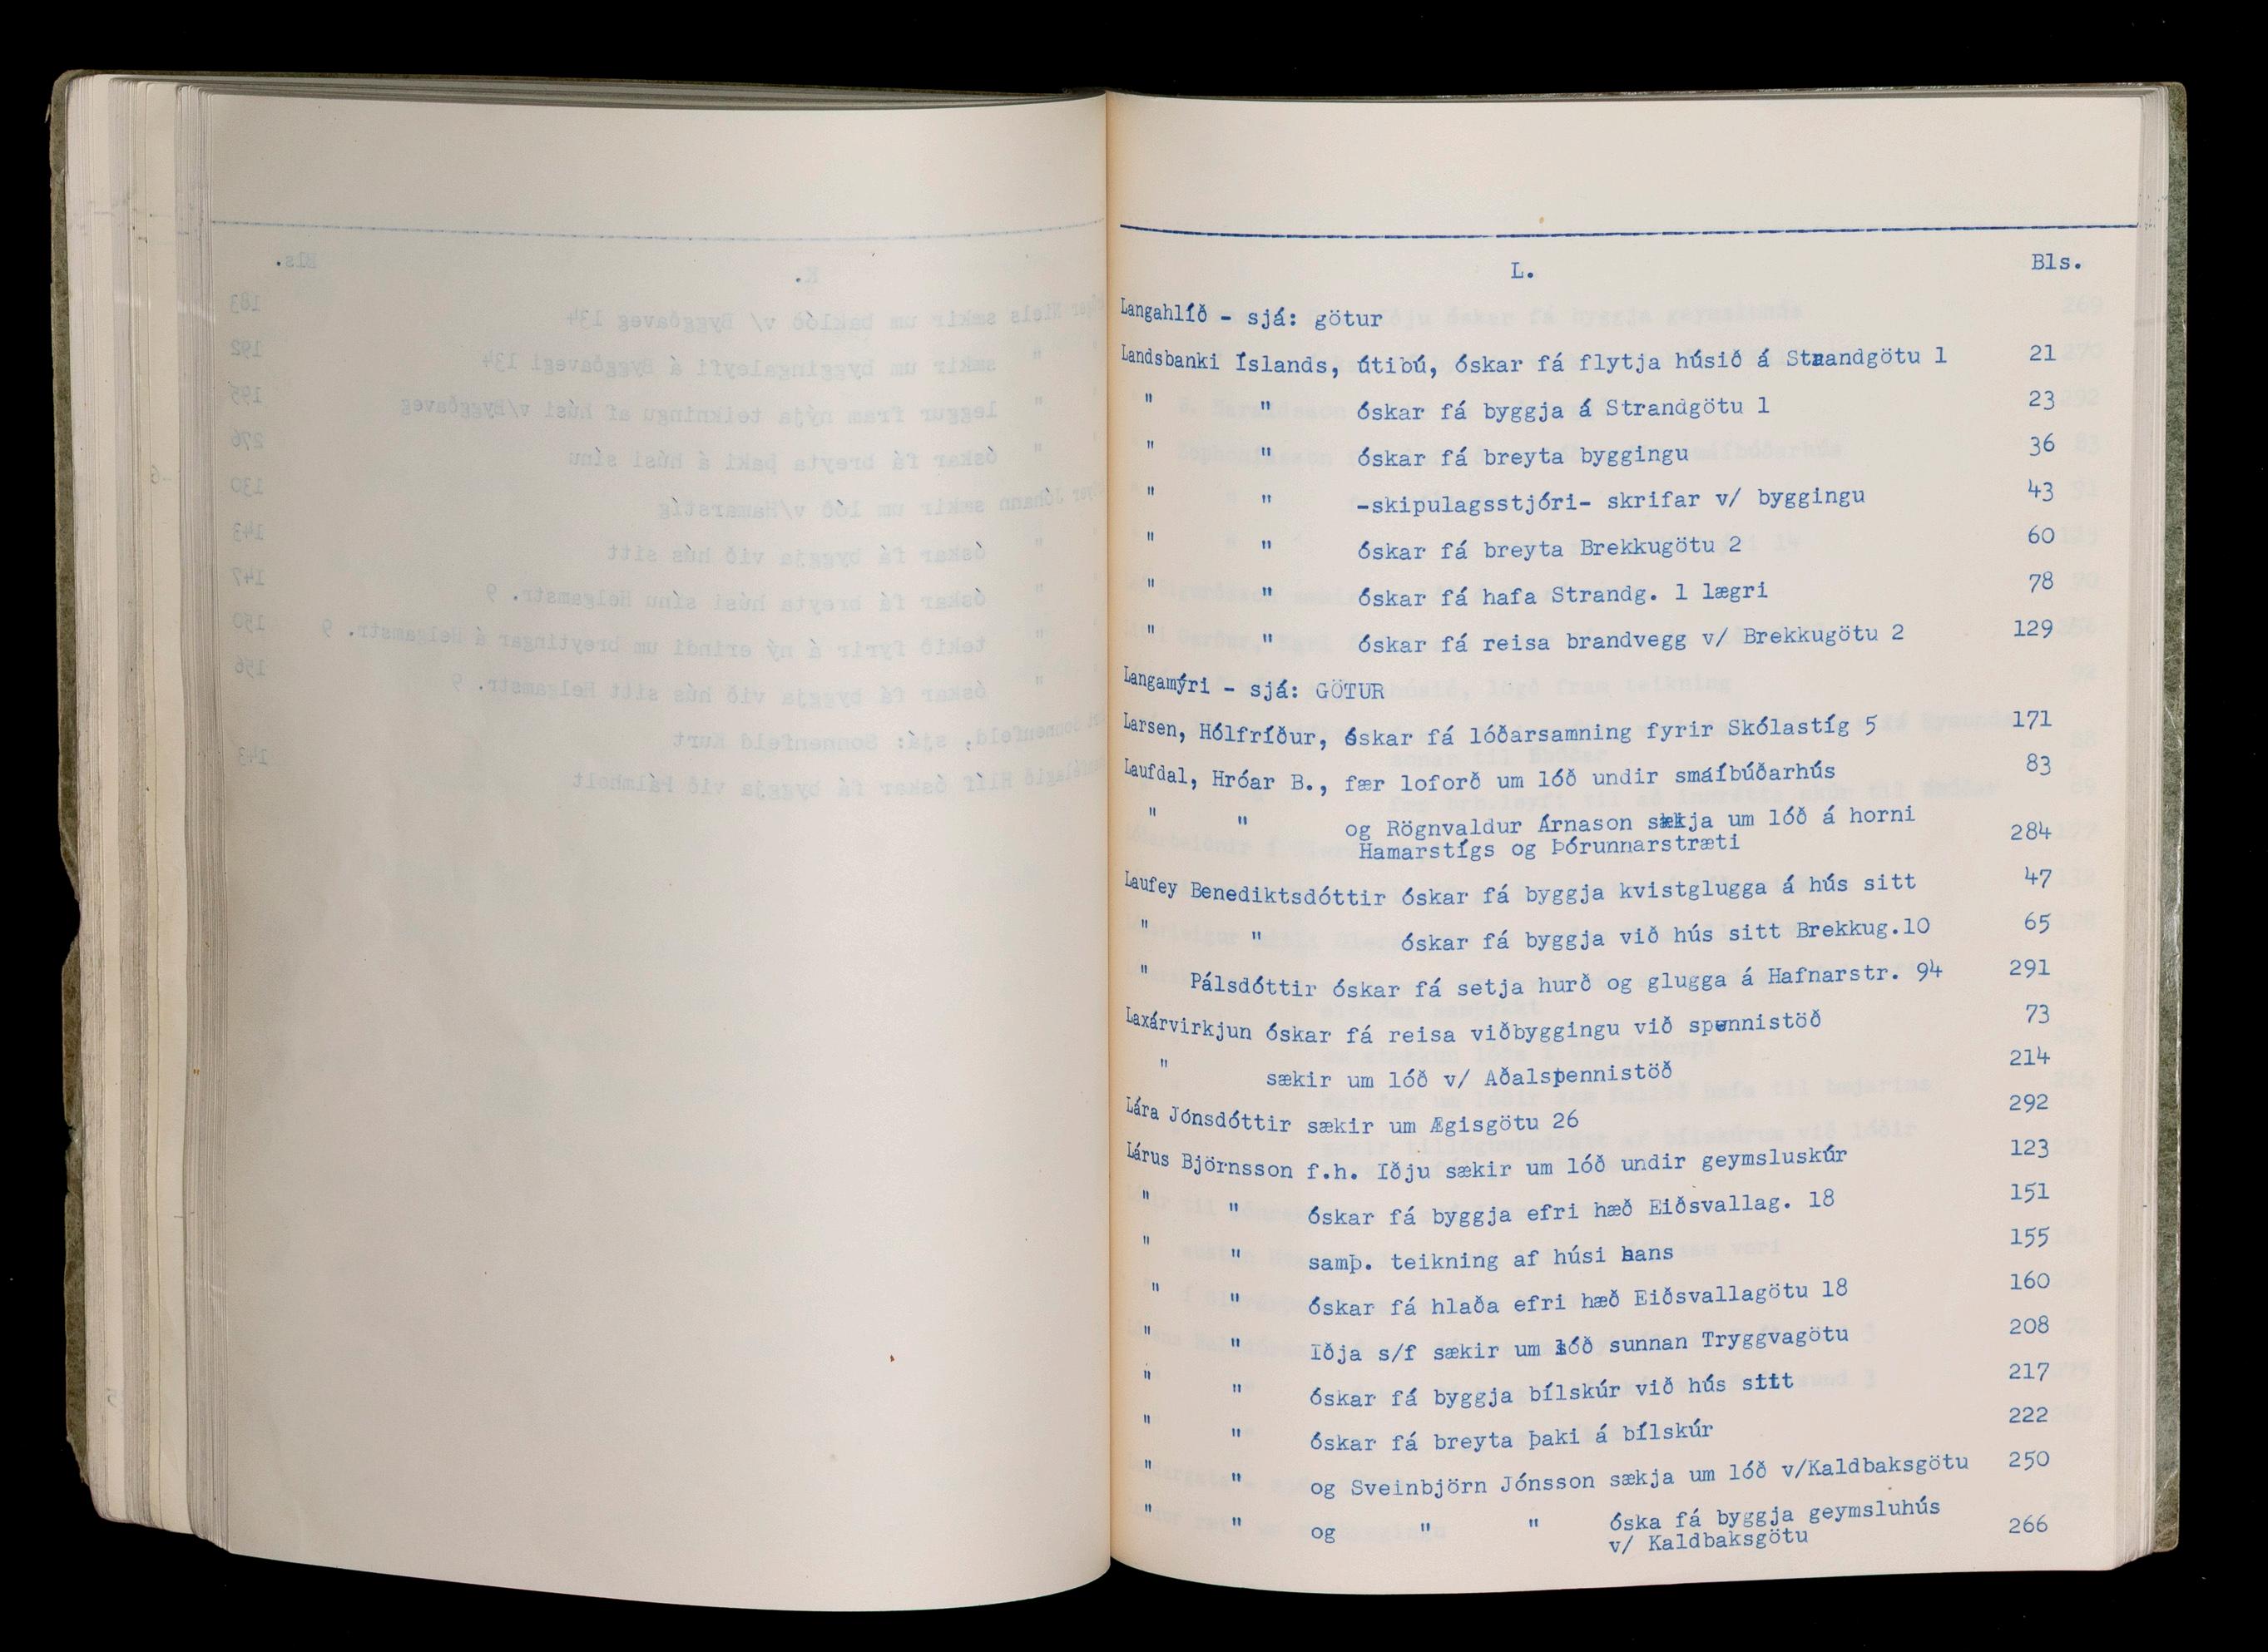 L. Bls.
Langahlíð - sjá: götur
Landsbanki Íslands, útibú, óskar fá flytja húsið á Strandgötu 1 21
" " óskar fá byggja á Strandgötu 1 23
" " óskar fá breyta byggingu 36
" " -skipulagsstjóri- skrifar v/ byggingu 43
" " óskar fá breyta Brekkugötu 2 60
" " óskar fá hafa Strandg. 1 lægri 78
" " óskar fá reisa brandvegg v/ Brekkugötu 2 129
Langamýri - sjá: GÖTUR
Larsen, Hólfríður, óskar fá lóðarsamning fyrir Skólastíg 5 171
Laufdal, Hróar B., fær loforð um lóð undir smáíbúðarhús 83
" " og Rögnvaldur Árnason sækja um lóð á horni
Hamarstígs og Þórunnarstræti 284
Laufey Benediktsdóttir óskar fá byggja kvistglugga á hús sitt 47
" " óskar fá byggja við hús sitt Brekkug.10 65
" Pálsdóttir óskar fá setja hurð og glugga á Hafnarstr. 94 291
Laxárvirkjun óskar fá reisa viðbyggingu við spennistöð 73
" sækir um lóð v/ Aðalspennistöð 214
Lára Jónsdóttir sækir um Ægisgötu 26 292
Lárus Björnsson f.h. Iðju sækir um lóð undir geymsluskúr 123
" " óskar fá byggja efri hæð Eiðsvallag. 18 151
" " samþ. teikning af húsi hans 155
" " óskar fá hlaða efri hæð Eiðsvallagötu 18 160
" " Iðja s/f sækir um lóð sunnan Tryggvagötu 208
" " óskar fá byggja bílskúr við hús sitt 217
" " óskar fá breyta þaki á bílskúr 222
" " og Sveinbjörn Jónsson sækja um lóð v/Kaldbaksgötu 250
" " og " " óska fá byggja geymsluhús
v/ Kaldbaksgötu 266